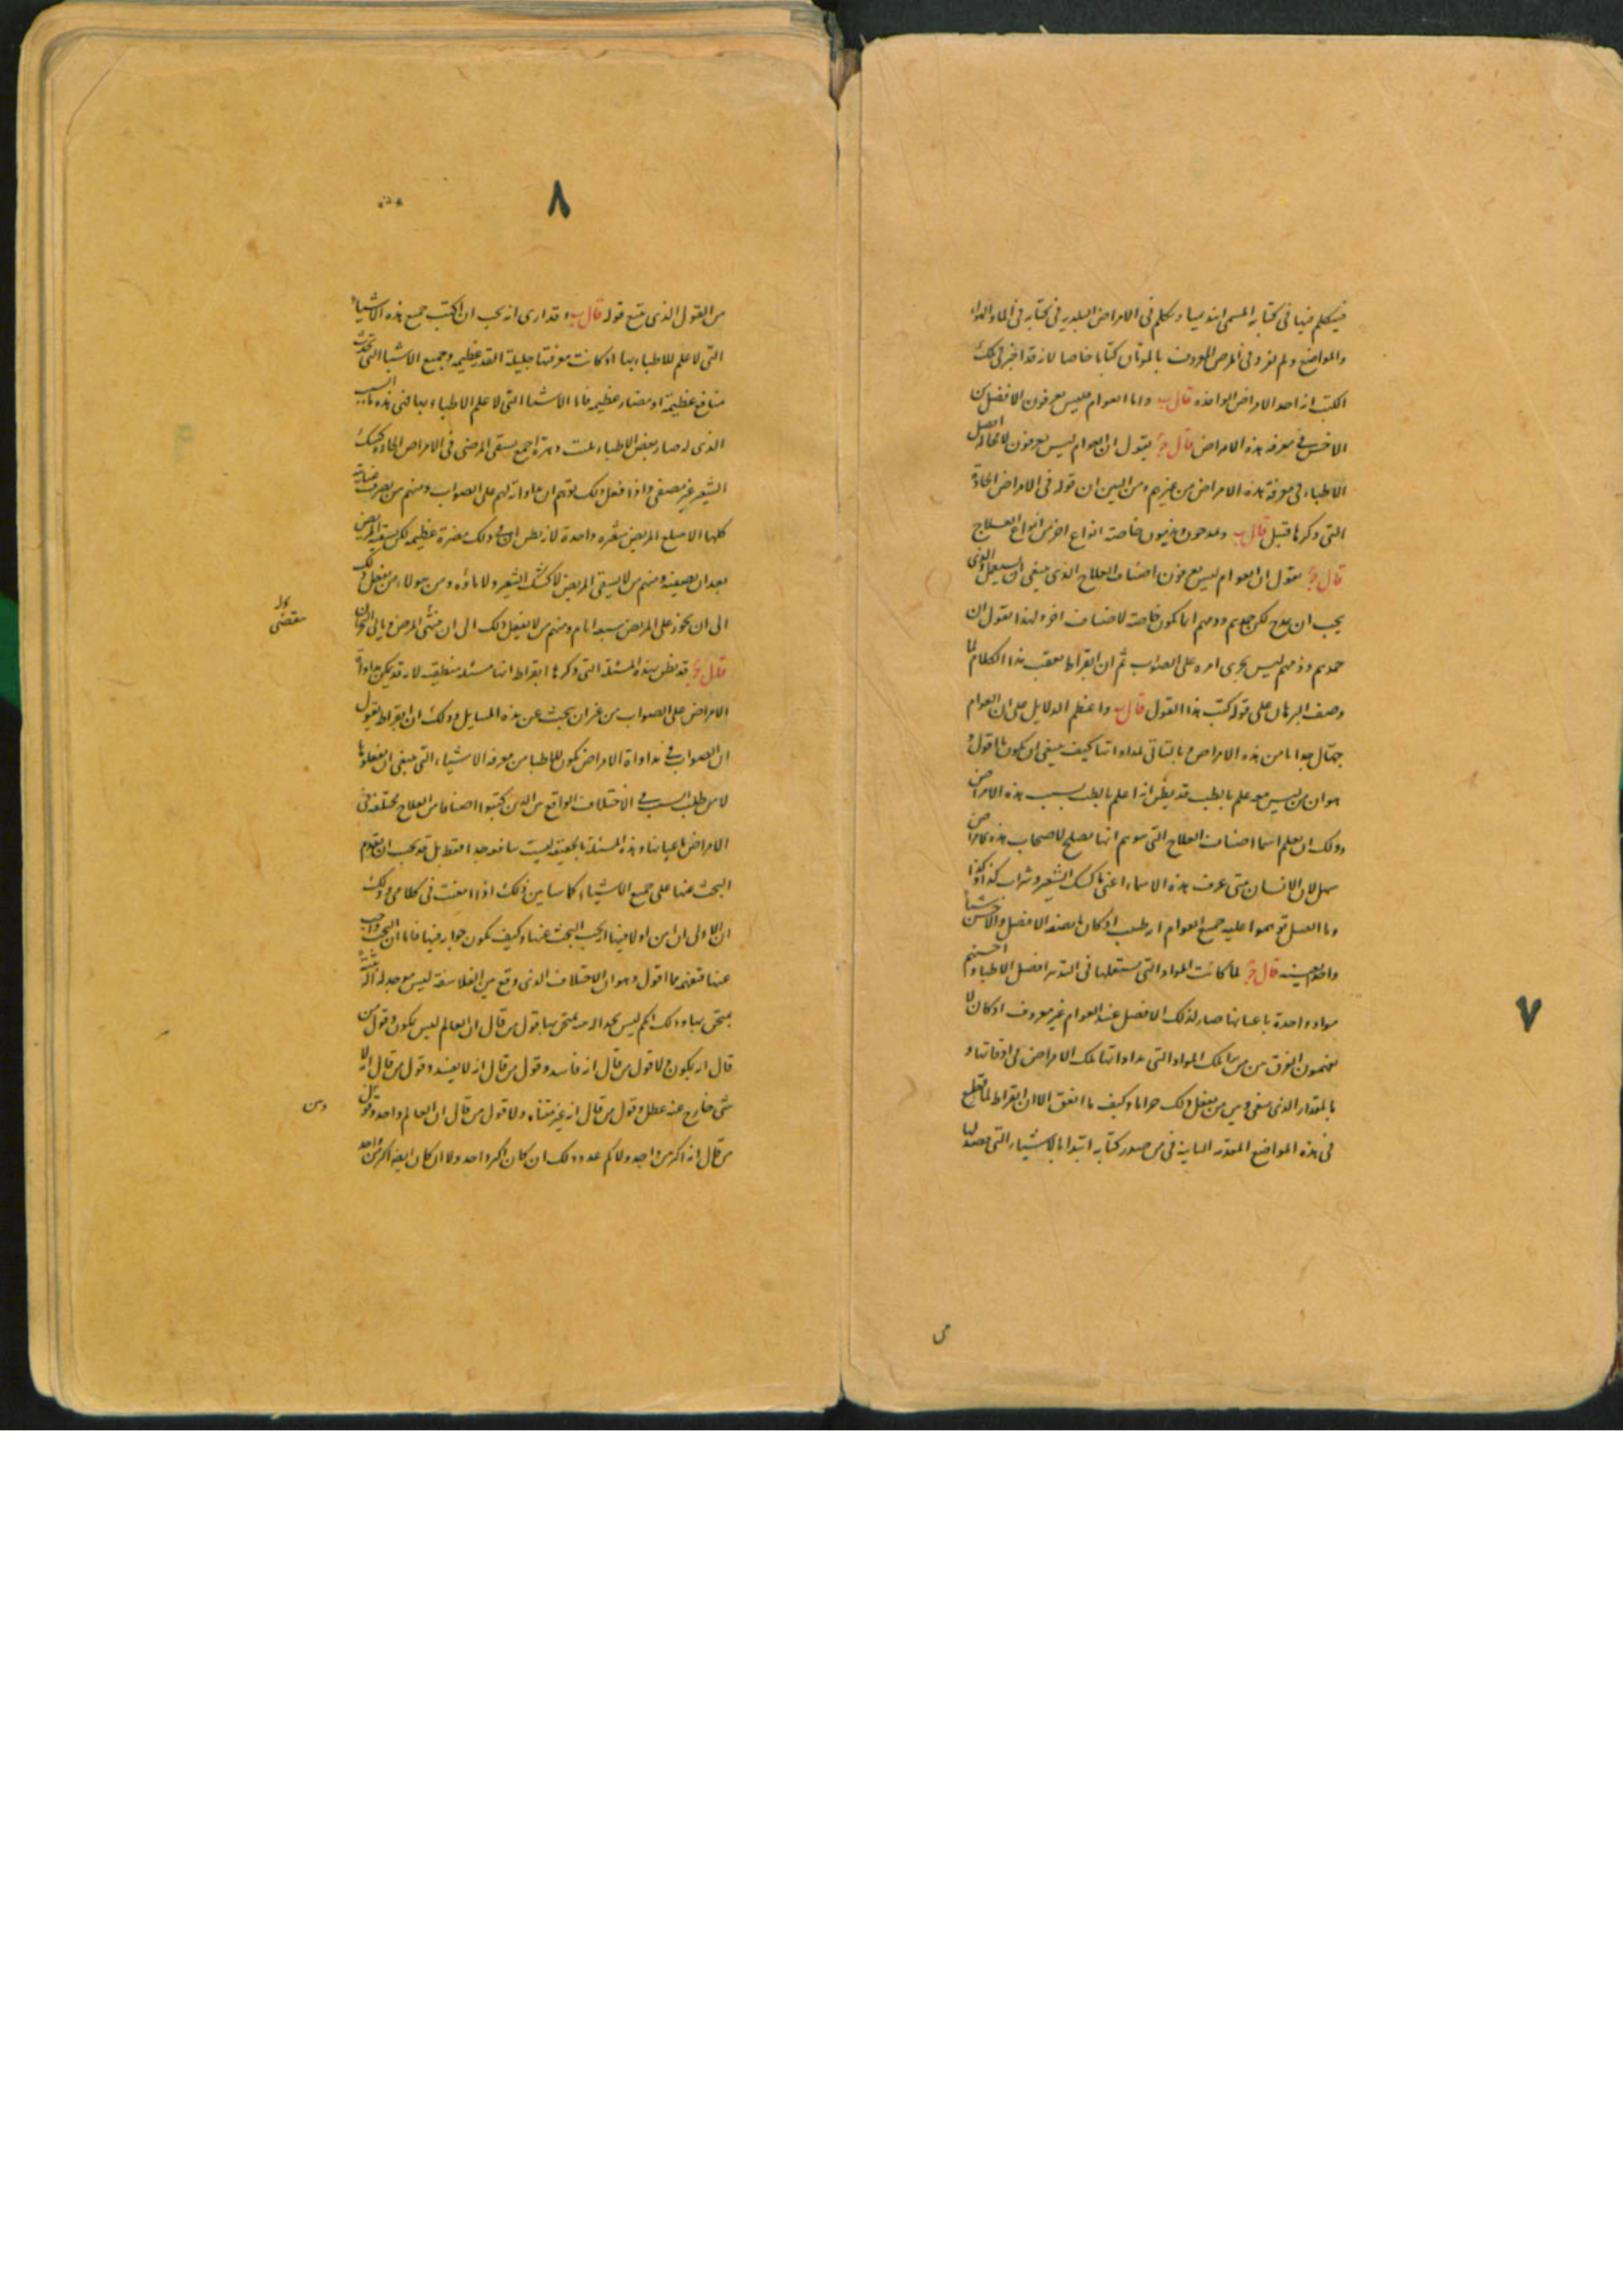 ٧
فيتكلم فيها فى كتابه المسمى ابيديميا ويتكلم فى الامراض البلدية فى كتابه فى الماء والهواء
والمواضع ولم يفرد فى المرض المعروف بالموتان كتابا خاصا لانه قد اخبر فى تلك
الكتب انه احد الامراض الوافدة قال ب واما العوام فليس يعرفون الافضل من
الاخس فى معرفة هذه الامراض قال ج يقول ان العوام ليس يعرفون افضل
الاطباء فى معرفة هذه الامراض من غيرهم ومن البين ان قوله فى الامراض الحادة
التى ذكرها قبيل قال ب ويمدحون ويذمون خاصة انواع اخر من انواع العلاج
قال ج يقول ان العوام ليس يعرفون اصناف العلاج الذى ينبغى ان يستعمل والذى
يجب ان يمدح لكن حمدهم وذمهم انما يكون خاصة لاصناف اخر ولهذا يقول ان
حمدهم وذمهم ليس يجرى امره على الصواب ثم ان ابقراط يعقب هذا الكلام لما
وصف البرهان على قوله كتب هذا القول قال ب واعظم الدلايل على ان العوام
جهال جدا من هذه الامراض بمداواتها كيف ينبغى ان يكون ما اقول
هو ان من ليس معه علم بالطب قد يظن انه اعلم بالطب بسبب هذه الامراض
وذلك ان يعلم اسما اصناف العلاج التى يوهم انها تصلح لاصحاب هذه الامراض
سهل لان الانسان متى عرف هذه الاسماء اعنى ماء كشك الشعير وشراب كذا وكذا
وماء العسل توهموا عليه جميع العوام انه طبيب اذ كان ما يصفه الافضل والاخس شيئا
واحدا بعينه قال ج لما كانت المواد التى يستعملها فى التدبير افضل الاطباء واخسهم
مواد واحدة باعيانها صار لذلك الافضل عند العوام غير معروف اذ كان لا
يفهمون الفرق بين من تلك المواد التى مداواتها تلك الامراض فى اوقاتها و
بالمقدار الذى ينبغى وبين من يفعل ذلك جزافا وكيف ما اتفق الا ان ابقراط لما قطع
فى هذه المواضع فى من صدر كتابه ابتدا بالاشياء التى قصد لها
من
٨
من القول الذى يتبع قوله قال ب وقد ارى انه يجب ان اكتب جميع هذه الاشياء
التى لا علم للاطباء بها اذ كانت معرفتها جليلة القدر عظيمة وجميع الاشياء التى تحدث
منافع عظيمة او مضار عظيمة فاما الاشيا التى لا علم الاطباء بها فهى هذه ما السبب
الذى له صار بعض الاطباء يلبث دهره اجمع يسقى المرضى فى الامراض الحادة كشك
الشعير غير مصفى واذا فعل ذلك توهم ان مداواته لهم على الصواب ومنهم من يصرف عنايته
كلها الا يبلع المريض شعيرة واحدة لانه يظن ان فى ذلك مضرة عظيمة لكن يسقيه المريض
بعد ان يصفيه ومنهم من لا يسقى المريض لا كشك الشعير ولا ماؤه ومن هولاء من يفعل ذلك
الى ان يجوز على المريض سبعة ايام ومنهم من لا يفعل ذلك الى ان ينتهى المرض وياتى البحران
قال ج قد يظن بهذه المسئلة التى ذكرها ابقراط انها مسئلة منطقية لانه قد يمكن مداواة
الامراض على الصواب من غير ان يبحث عن هذه المسايل وذلك ان ابقراط يقول
ان الصواب فى مداواة الامراض يكون للاطبا من معرفة الاشياء التى ينبغى ان يفعلوها
لا من طلب السبب فى الاختلاف الواقع بين الذين كتبوا اصنافا من العلاج مختلفة فى
الامراض باعيانها وهذه المسئلة بالحقيقة ليست نافعة جدا فقط بل قد يجب ان يقدم
البحث عنها على جميع الاشياء كما سابين ذلك اذا امعنت فى كلامى وذلك
ان الاولى ان ابين اولا فيها انه يجب البحث عنها وكيف يكون جوابه فيها فاما ان البحث واجب
عنها فتفهمه مما اقول وهو ان الاختلاف الذى وقع بين الفلاسفة ليس معه جدله الة
يمتحن بها وذلك انكم ليس تجدا الة نمتحن بها قول من قال ان العالم ليس يكون وقول من
قال انه يكون ولا قول من قال انه فاسد وقول من قال انه لا يفسد وقول من قال انه لا
شى خارج عنه عطل وقول من قال انه غير متناه ولا قول من قال ان العالم واحد وقول
من قال انه اكثر من واحد ولا كم عدد ذلك ان كان اكثر واحد ولا ان كان ايضا اكثر من واحد